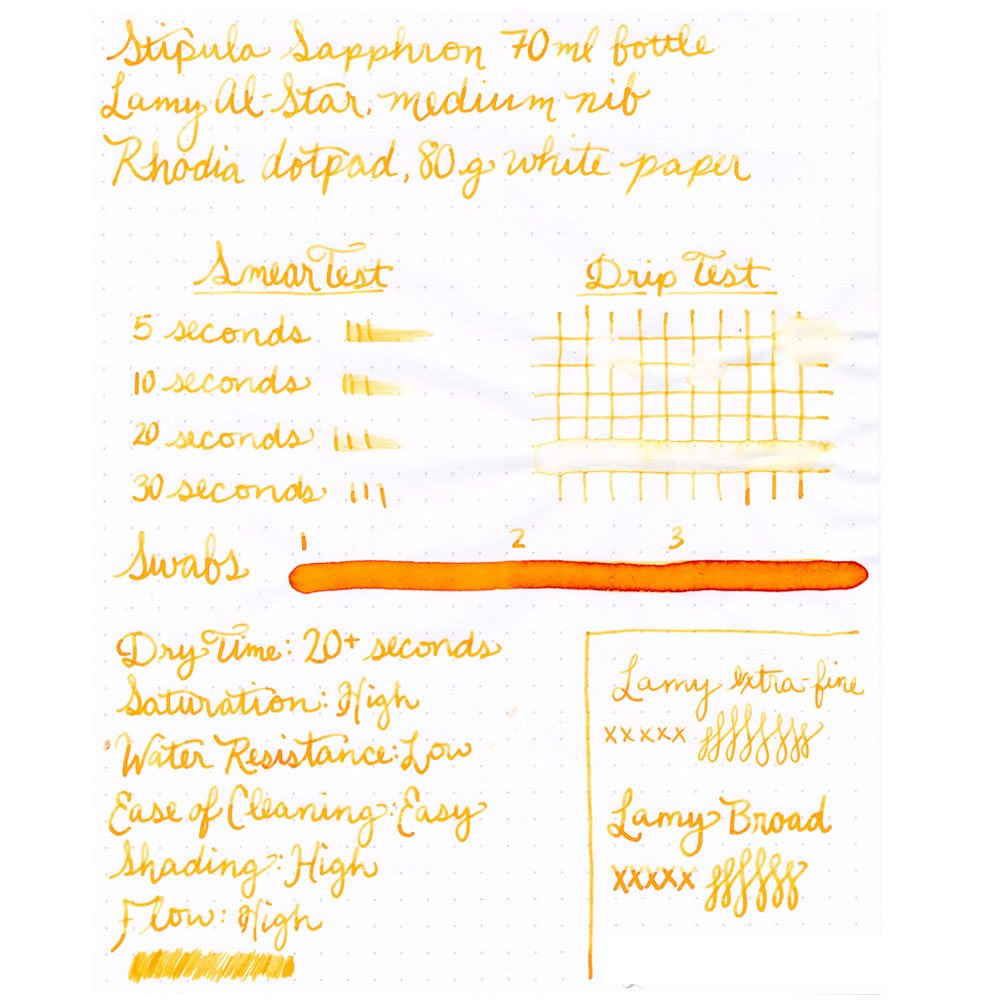 Stipula Sapphron 70ml bottle
Lamy Al-Star, medium nib
Rhodia dotpad, 80g white paper
Smear Test
5 seconds
10 seconds
20 seconds
30 seconds
Drip Test
Swabs
1 2 3
Dry Time: 20+ seconds
Saturation: High
Water Resistance: Low
Ease of Cleaning: Easy
Shading: High
Flow: High
Lamy extra-fine
xxxxx
Lamy Broad
xxxxx